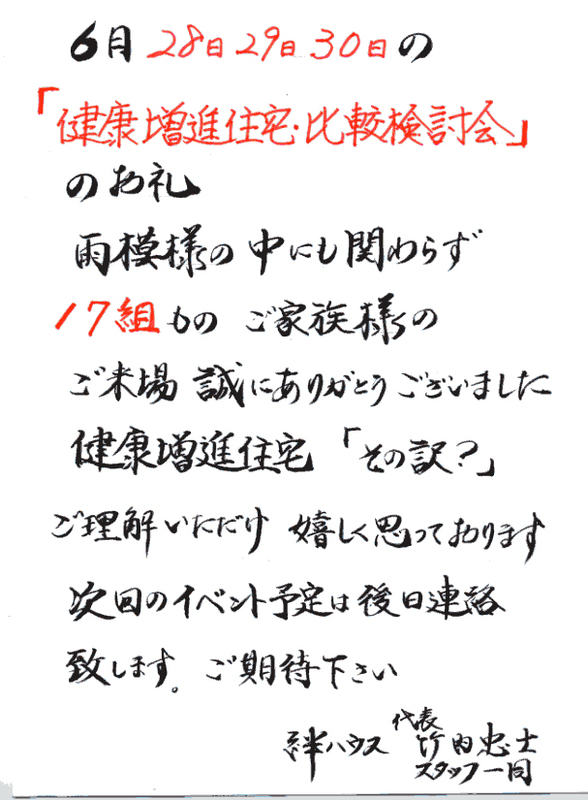 6月 28日 29日 30日の
「健康増進住宅・比較検討会」
のお礼
雨模様の中にも関わらず
17組もの ご家族様の
ご来場 誠にありがとうございました
健康増進住宅「その訳?」
ご理解いただけ 嬉しく思っております
次回のイベント予定は後日連絡
致します。ご期待下さい
絆ハウス 代表 竹内忠士
スタッフ一同